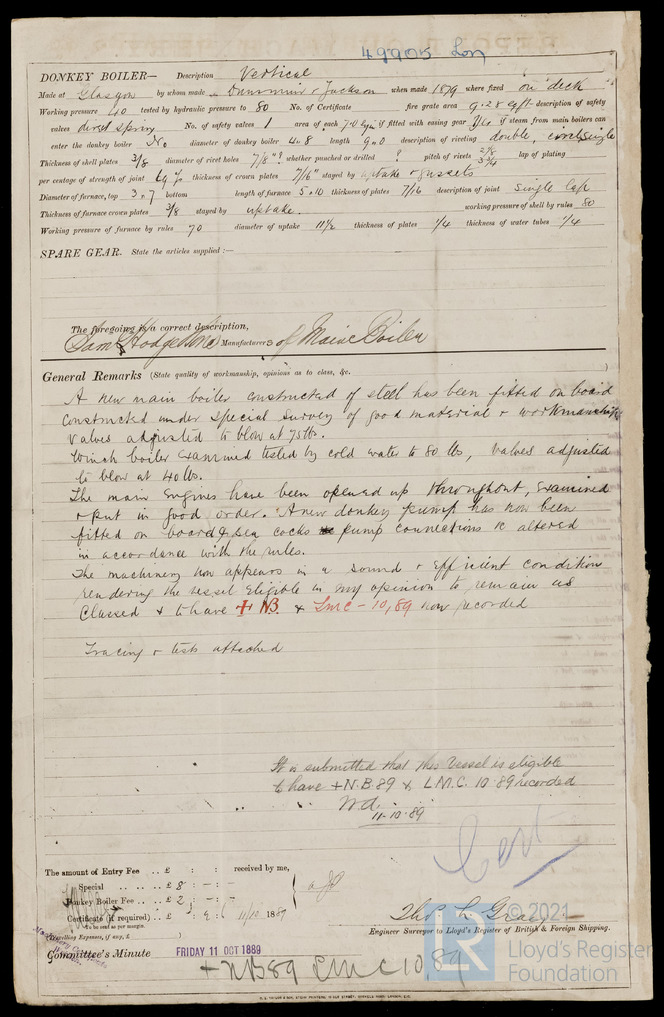 49905 Lon
DONKEY BOILER— Description Vertical
Made at Glasgow by whom made Dunsmuir & Jackson when made 1879 where fixed on deck
Working pressure 40 tested by hydraulic pressure to 80 No. of Certificate fire grate area 9.28 sq ft description of safety
valves direct spring No. of safety valves 1 area of each 7.0 if fitted with easing gear yes if steam from main boilers can
enter the donkey boiler No diameter of donkey boiler 4.8 length 9.0 description of riveting double, single
Thickness of shell plates 3/8 diameter of rivet holes 7/8"? whether punched or drilled ? pitch of rivets 2 7/8 3 3/4 lap of plating
per centage of strength of joint 69 % thickness of crown plates 7/16" stayed by uptake & gussets
Diameter of furnace, top 3.7 bottom length of furnace 5.10 thickness of plates 7/16 description of joint Single Lap
Thickness of furnace crown plates 3/8 stayed by uptake. working pressure of shell by rules 80
Working pressure of furnace by rules 70 diameter of uptake 11 1/2 thickness of plates 1/4 thickness of water tubes 1/4
SPARE GEAR. State the articles supplied:—
The foregoing is a correct description,
Manufacturers of Main Boiler
General Remarks (State quality of workmanship, opinions as to class, &c. )
A new main boiler constructed of steel has been fitted on board
constructed under special survey of good material & workmanship
valves adjusted to blow at 75 lbs.
Winch boiler examined tested by cold water to 80 lbs, valves adjusted
to blow at 40 lbs.
The main engines have been opened up throughout, examined
& put in good order. A new donkey pump has now been
fitted on board & sea cocks pump connections &c altered
in accordance with the rules.
The machinery now appears in a sound & efficient condition
rendering the vessel eligible in my opinion to remain as
Classed & to have + NB & LMC - 10,89 now recorded
Tracing & tests attached
It is submitted that this vessel is eligible
to have + N.B. 89 & L.M.C. 10.89 recorded
11-10-89
Cert
The amount of Entry Fee .. £ : : received by me,
Special .. .. £ 8 : - : -
Donkey Boiler Fee .. £ 2 : - : -
Certificate (if required) .. £ : : 11/10 1889
To be sent as per margin.
(Travelling Expenses, if any, £ )
Engineer Surveyor to Lloyd's Register of British & Foreign Shipping.
Committee's Minute FRIDAY 11 OCT 1889
+ NB 89 LMC 10 89
© 2021
LR
Lloyd's Register
Foundation